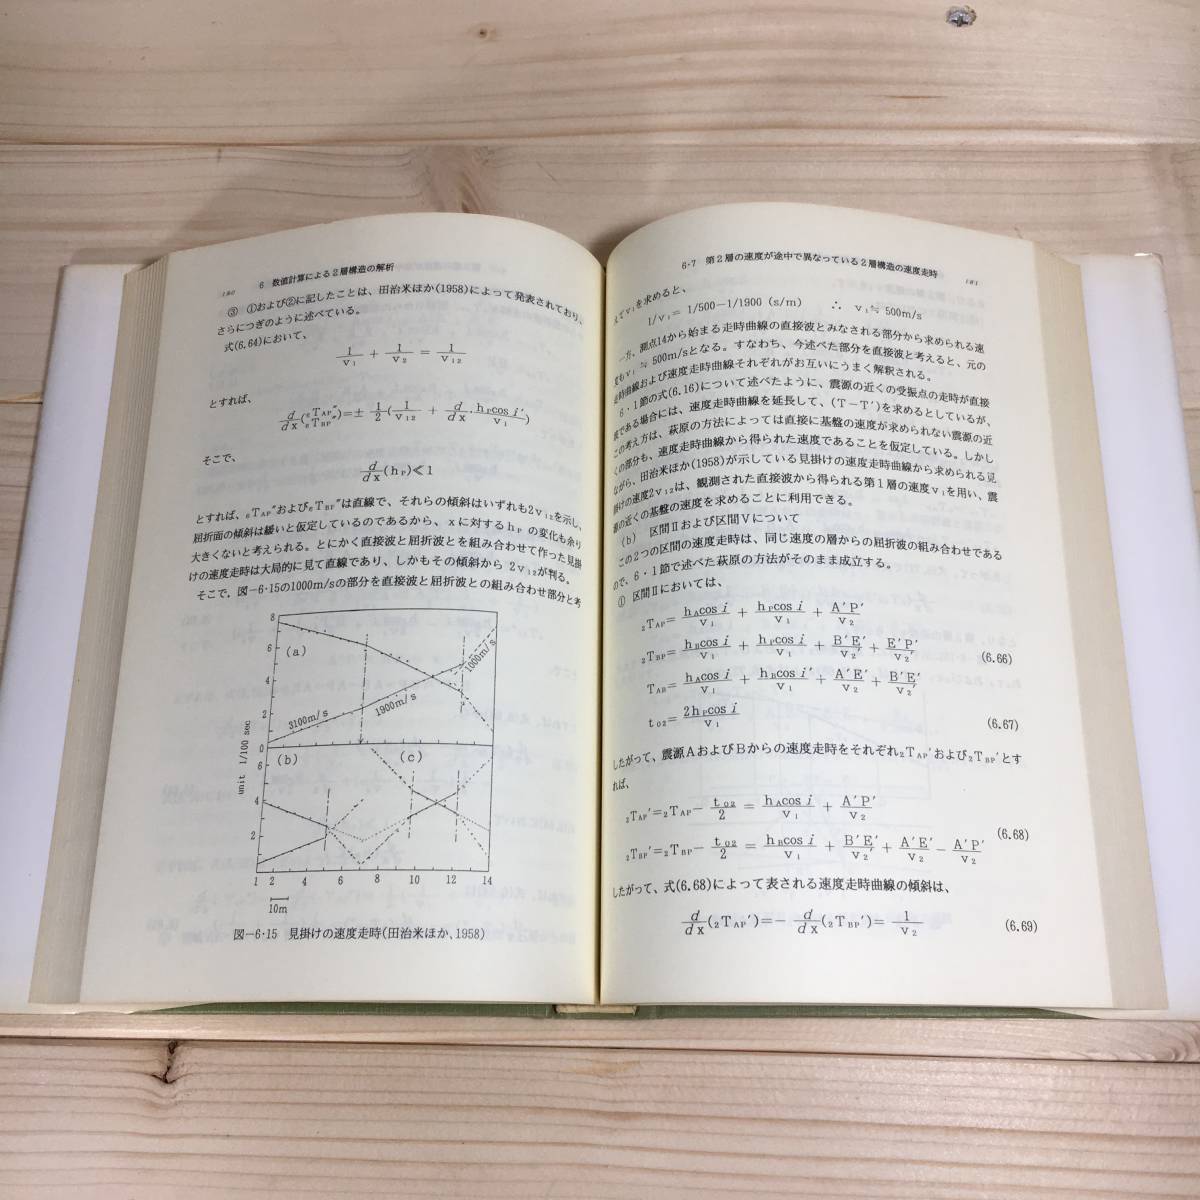 180　6　数値計算による2層構造の解析
③　①および②に記したことは、田治米ほか(1958)によって発表されており、
さらにつぎのように述べている。
式(6.64)において、
1/v₁ + 1/v₂ = 1/v₁₂
とすれば、
d/dx(₆T_AP″ ₆T_BP″)=± 1/2(1/v₁₂ + d/dx・h_P cos i′/v₁)
そこで、
d/dx(h_P)≪1
とすれば、₆T_AP″および₆T_BP″は直線で、それらの傾斜はいずれも2v₁₂を示し、
屈折面の傾斜は緩いと仮定しているのであるから、xに対するh_Pの変化も余り
大きくないと考えられる。とにかく直接波と屈折波とを組み合わせて作った見掛
けの速度走時は大局的に見て直線であり、しかもその傾斜から 2v₁₂が判る。
そこで、図-6・15の1000m/sの部分を直接波と屈折波との組み合わせ部分と考
8
6
4
2
0
6
4
2
unit 1/100 sec
(a)
3100m/s
1900m/s
1000m/s
(b)
(c)
1 2 4 6 7 8 10 12 14
10m
図-6・15　見掛けの速度走時(田治米ほか、1958)
6・7　第2層の速度が途中で異なっている2層構造の速度走時　181
えてv₁を求めると、
1/v₁= 1/500-1/1900 (s/m)　∴ v₁≒ 500m/s
一方、測点14から始まる走時曲線の直接波とみなされる部分から求められる速
度もv₁ ≒ 500m/sとなる。すなわち、今述べた部分を直接波と考えると、元の
走時曲線および速度走時曲線それぞれがお互いにうまく解釈される。
6・1節の式(6.16)について述べたように、震源の近くの受振点の走時が直接
波である場合には、速度走時曲線を延長して、(T-T′)を求めるとしているが、
この考え方は、萩原の方法によっては直接に基盤の速度が求められない震源の近
くの部分も、速度走時曲線から得られた速度であることを仮定している。しかし
ながら、田治米ほか(1958)が示している見掛けの速度走時曲線から求められる見
掛けの速度2v₁₂は、観測された直接波から得られる第1層の速度v₁を用い、震
源の近くの基盤の速度を求めることに利用できる。
(b)　区間Ⅱおよび区間Ⅴについて
この2つの区間の速度走時は、同じ速度の層からの屈折波の組み合わせである
ので、6・1節で述べた萩原の方法がそのまま成立する。
①　区間Ⅱにおいては、
₂T_AP= h_A cos i/v₁ + h_P cos i/v₁ + A′P′/v₂
₂T_BP= h_B cos i/v₁ + h_P cos i/v₁ + B′E′/v₂′ + E′P′/v₂′　(6.66)
T_AB= h_A cos i/v₁ + h_B cos i′/v₁ + A′E′/v₂ + B′E′/v₂′
t₀₂= 2h_P cos i/v₁　(6.67)
したがって、震源AおよびBからの速度走時をそれぞれ₂T_AP′および₂T_BP′とす
れば、
₂T_AP′=₂T_AP- t₀₂/2 = h_A cos i/v₁ + A′P′/v₂
₂T_BP′=₂T_BP- t₀₂/2 = h_B cos i/v₁ + B′E′/v₂′ + A′E′/v₂ - A′P′/v₂　(6.68)
したがって、式(6.68)によって表される速度走時曲線の傾斜は、
d/dx(₂T_AP′)=- d/dx(₂T_BP′)= 1/v₂　(6.69)